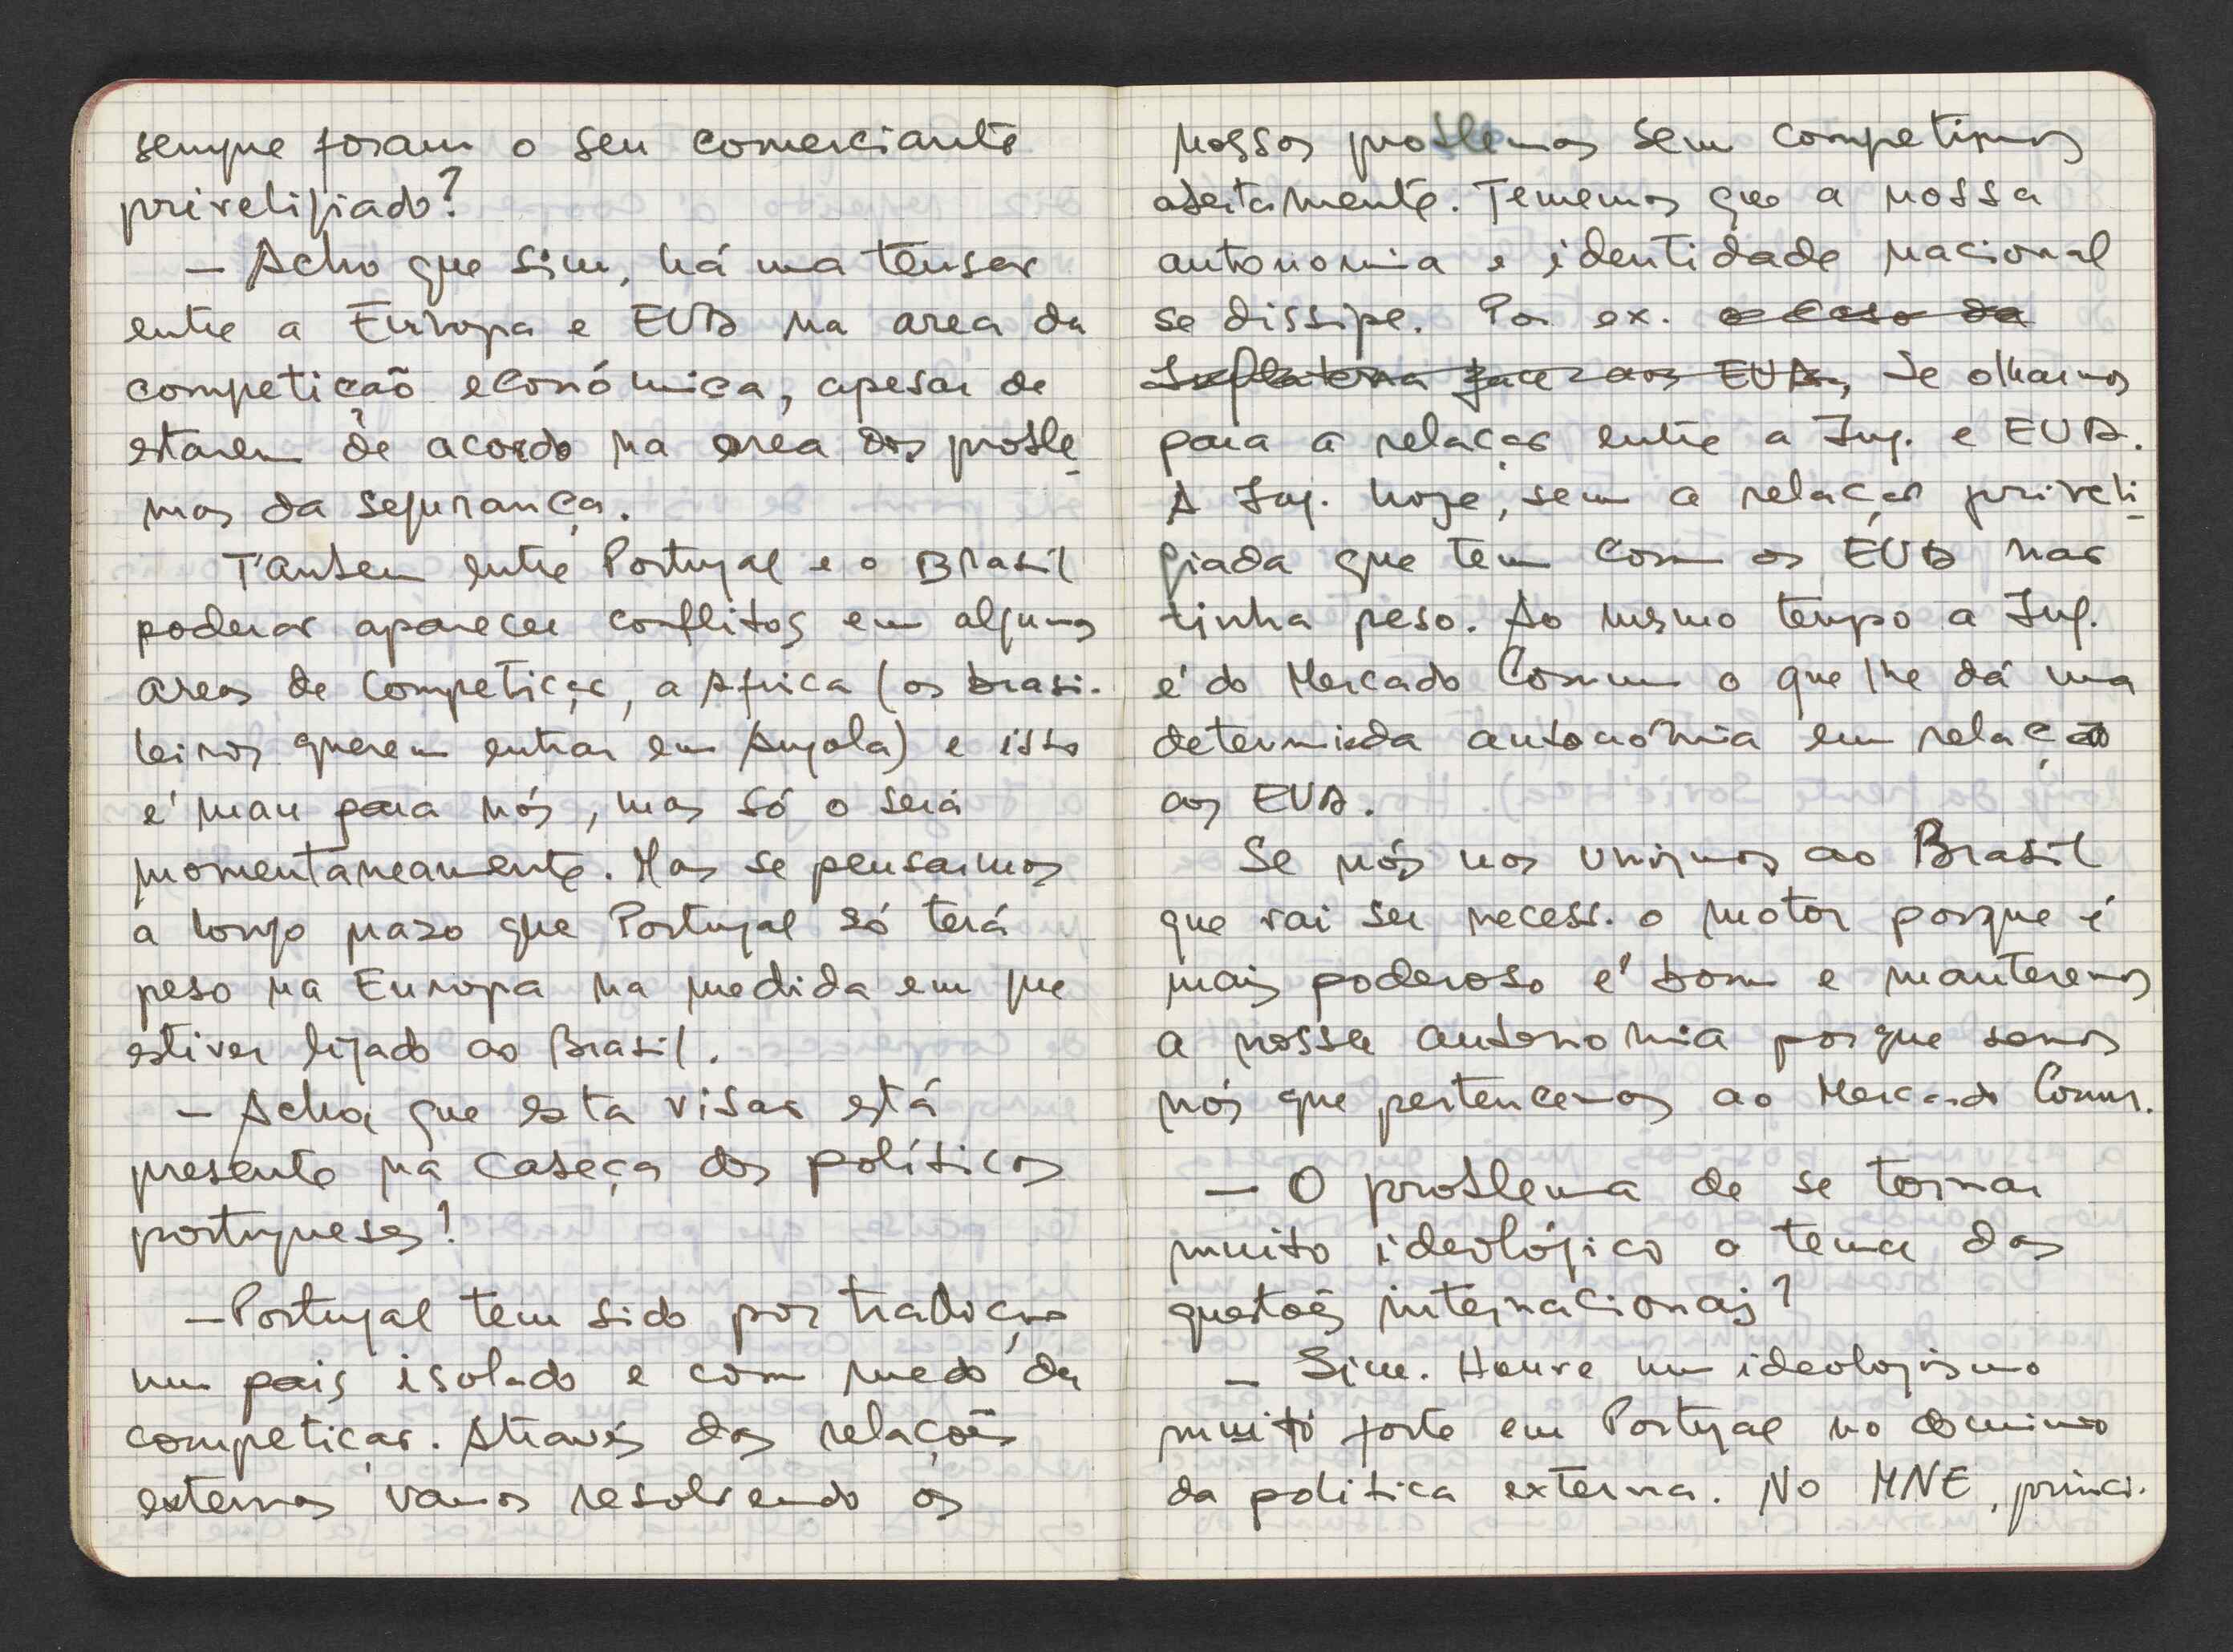 sempre foram o seu comerciante
priveligiado?
— Acho que sim, há uma tensão
entre a Europa e EUA na area da
competição económica, apesar de
estarem de acordo na area dos proble-
mas da segurança.
Tambem entre Portugal e o Brasil
poderão aparecer conflitos em algumas
areas de competição, a Africa (os brasi-
leiros querem entrar em Angola) e isso
é mau para nós, mas só o será
momentaneamente. Mas se pensarmos
a longo prazo que Portugal só terá
peso na Europa na medida em que
estiver ligado ao Brasil.
— Acha que esta visão está
presente na cabeça dos políticos
portugueses?
— Portugal tem sido por tradição
um pais isolado e com medo da
competição. Através das relações
externas vamos resolvendo os
nossos problemas sem competirmos
abertamente. Tememos que a nossa
autonomia e identidade nacional
se dissipe. Por ex. o caso da
Inglaterra face aos EUA, se olharmos
para a relação entre a Ing. e EUA.
A Ing. hoje, sem a relação priveli-
giada que tem com os EUA não
tinha peso. Ao mesmo tempo a Ing.
é do Mercado Comum o que lhe dá uma
determinada autonomia em relação
aos EUA.
Se nós nos unirmos ao Brasil
que vai ser necess. o motor porque é
mais poderoso é bom e manteremos
a nossa autonomia porque somos
nós que pertencemos ao Mercado Comum.
— O problema de se tornar
muito ideológico o tema das
questões internacionais?
— Sim. Houve um ideologismo
muito forte em Portugal no dominio
da politica externa. No MNE, princi-